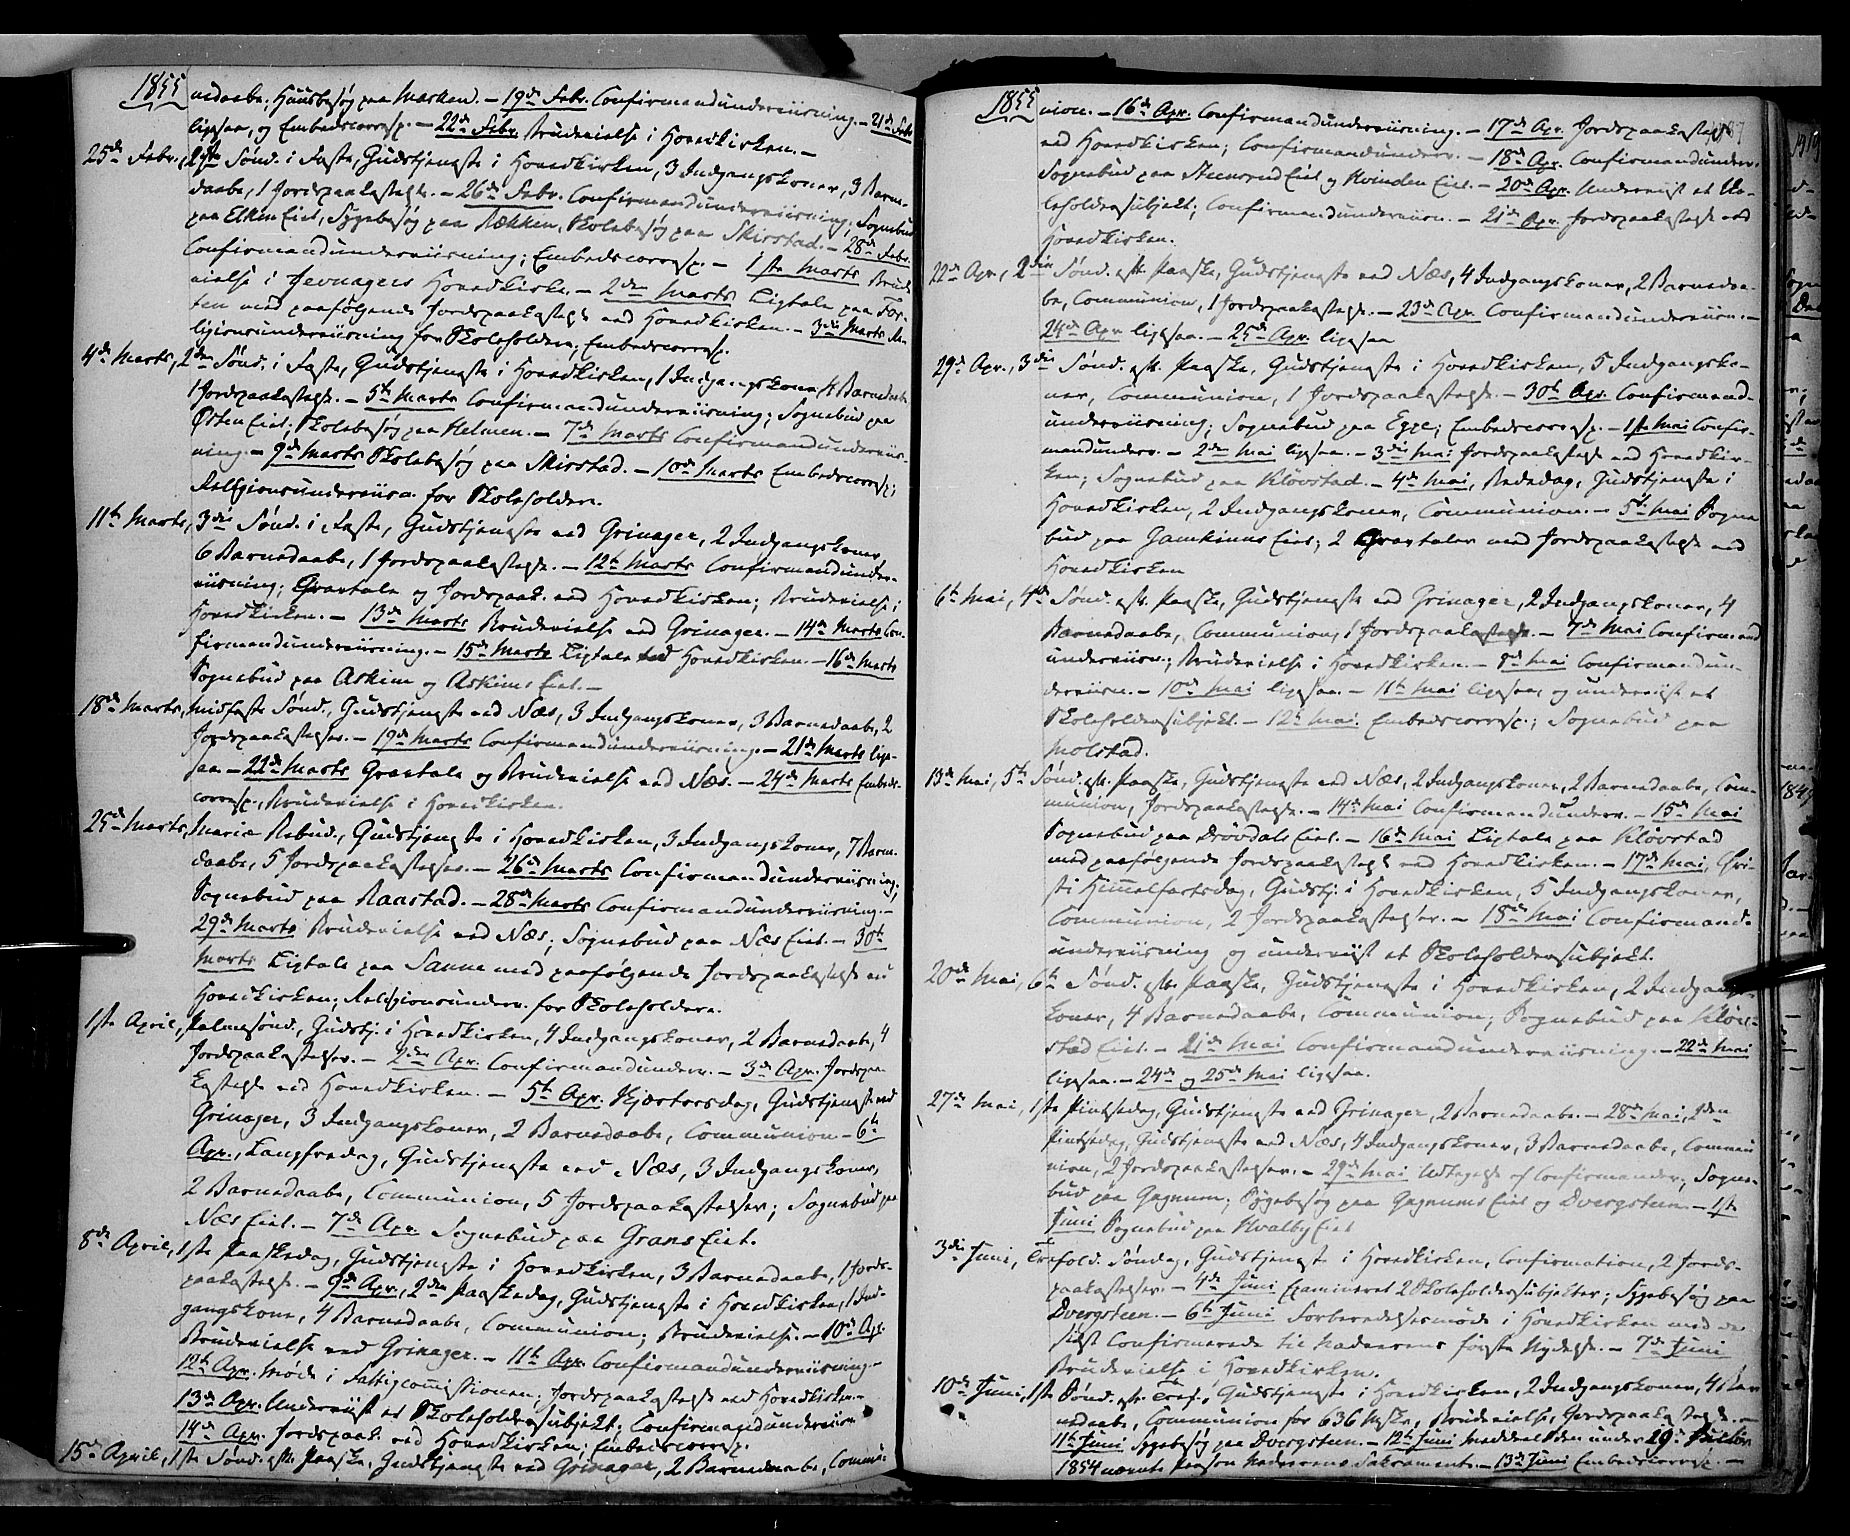 1855 nedaabe, Huusbesøg paa Marken. – 19de Febr. Confirmandunderviisning. – 21de Febr
ligesaa, og Embedscorresp. – 22de Febr. Brudevielse i Hovedkirken. –
25de Febr., 1ste Sønd. i Faste, Gudstjeneste i Hovedkirken, 3 Indgangskoner, 3 Barne-
daabe, 1 Jordspaakastelse. – 26de Febr. Confirmandunderviisning; Sognebud
paa Elken Eiet, Sygebesøg paa Rækken, Skolebesøg paa Skirstad. – 28de Febr.
Confirmandunderviisning; Embedscorresp. – 1ste Marts Brude-
vielse i Jevnagers Hovedkirke. – 2den Marts Ligtale paa
med paafølgende Jordspaakastelse ved Hovedkirken. – 3die Marts Re-
ligionsunderviisning for Skoleholdere; Embedscorresp.
4de Marts, 2den Sønd. i Faste, Gudstjeneste i Hovedkirken, 1 Indgangskone, 4 Barnedaabe
1 Jordspaakastelse. – 5te Marts Confirmandunderviisning; Sognebud paa
Østen Eiet; Skolebesøg paa Helmen. – 7de Marts Confirmandunderviis-
ning. – 9de Marts Skolebesøg paa Skirstad. – 10de Marts Embedscorresp;
Religionsunderviisn. for Skoleholdere.
11te Marts, 3die Sønd. i Faste, Gudstjeneste ved Grinager, 2 Indgangskoner,
6 Barnedaabe, 1 Jordspaakastelse. – 12te Marts Confirmandunder-
viisning; Gravtale og Jordspaak. ved Hovedkirken; Brudevielse i
Hovedkirken. – 13de Marts Brudevielse ved Grinager. – 14de Marts Con-
firmandunderviisning. – 15de Marts Ligtale ved Hovedkirken. – 16de Marts
Sognebud paa Askim og Askims Eiet. –
18de Marts, Midfaste Sønd., Gudstjeneste ved Næs, 3 Indgangskoner, 3 Barnedaabe, 2
Jordspaakastelser. – 19de Marts Confirmandunderviisning. – 21de Marts lige-
saa. – 22de Marts Gravtale og Brudevielse ved Næs. – 24de Marts Embeds-
corresp., Brudevielse i Hovedkirken.
25de Marts, Mariæ Bebud., Gudstjeneste i Hovedkirken, 3 Indgangskoner, 7 Barne-
daabe, 5 Jordspaakastelser. – 26de Marts Confirmandunderviisning;
Sognebud paa Raastad. – 28de Marts Confirmandunderviisning. –
29de Marts Brudevielse ved Næs; Sognebud paa Næs Eiet. – 30te
Marts Ligtale paa Sanne med paafølgende Jordspaakastelse ved
Hovedkirken; Religionsunderv. for Skoleholdere.
1ste April, Palmesønd., Gudstj. i Hovedkirken, 4 Indgangskoner, 2 Barnedaabe, 4
Jordspaakastelser. – 2den Apr. Confirmandunderv. – 3die Apr. Jordspaa-
kastelse ved Hovedkirken. – 5te Apr. Skjærtorsdag, Gudstjeneste ved
Grinager, 3 Indgangskoner, 2 Barnedaabe, Communion. – 6te
Apr., Langfredag, Gudstjeneste ved Næs, 3 Indgangskoner,
2 Barnedaabe, Communion, 5 Jordspaakastelser; Sognebud paa
Næs Eiet. – 7de Apr. Sognebud paa Grans Eiet.
8de April, 1ste Paaskedag, Gudstjeneste i Hovedkirken, 3 Barnedaabe, 1 Jords-
paakastelse. – 9de Apr., 2den Paaskedag, Gudstjeneste i Hovedkirken, 1 Ind-
gangskone, 4 Barnedaabe, Communion; Brudevielse. – 10de Apr.
Brudevielse ved Grinager. – 11te Apr. Confirmandunderviisning. –
12te Apr. Møde i Fattigcommissionen; Jordspaakastelse ved Hovedkirken. –
13de Apr. Underviist et Skoleholdersubjekt; Confirmandunderviisn.
14de Apr. Jordspaak. ved Hovedkirken; Embedscorresp.
15de April, 1ste Sønd. eft. Paaske, Gudstjeneste ved Grinager, 2 Barnedaabe, Commu-
1855 nion. – 16de Apr. Confirmandunderviisning. – 17de Apr. Jordspaakastelse
ved Hovedkirken; Confirmandunderv. – 18de Apr. Confirmandunder.
Sognebud paa Steensrud Eiet og Kvinden Eiet. – 20de Apr. Underviist et Sko-
leholdersubjekt; Confirmandunderviisn. – 21de Apr. Jordspaakastelse ved
Hovedkirken.
22de Apr, 2den Sønd. eft. Paaske, Gudstjeneste ved Næs, 4 Indgangskoner, 2 Barnedaa-
be, Communion, 1 Jordspaakastelse. – 23de Apr Confirmandunderviisn. –
24de Apr ligesaa. – 25de Apr. ligesaa
29de Apr., 3die Sønd. eft. Paaske, Gudstjeneste i Hovedkirken, 5 Indgangsko-
ner, Communion, 1 Jordspaakastelse. – 30te Apr. Confirmand-
underviisning; Sognebud paa Egge; Embedscorresp. – 1ste Mai Confir-
mandunderv. – 2den Mai ligesaa. – 3die Mai Jordspaakastelse ved Hovedkir-
ken; Sognebud paa Kløvstad. – 4de Mai, Bededag, Gudstjeneste i
Hovedkirken, 2 Indgangskoner, Communion. – 5te Mai Sogne
bud paa Gamkinns Eiet; 2 Gravtaler med Jordspaakastelse ved
Hovedkirken
6te Mai, 4de Sønd. eft. Paaske, Gudstjeneste ved Grinager, 2 Indgangskoner, 4
Barnedaabe, Communion, 1 Jordspaakastelse. – 7de Mai Confirmand
underviisn.; Brudevielse i Hovedkirken. – 9de Mai Confirmandun-
derviisn. – 10de Mai ligesaa. – 11te Mai ligesaa, og underviist et
Skoleholdersubjekt. – 12te Mai. Embedscorresp.; Sognebud paa
Molstad.
13de Mai, 5te Sønd. eft. Paaske, Gudstjeneste ved Næs, 2 Indgangskoner, 2 Barnedaabe, Com-
munion, Jordspaakastelse. – 14de Mai Confirmandunderv. – 15de Mai
Sognebud paa Drøvdals Eiet. – 16de Mai Ligtale paa Kløvstad
med paafølgende Jordspaakastelse ved Hovedkirken. – 17de Mai, Chri-
sti Himmelfartsdag, Gudstj. i Hovedkirken, 5 Indgangskoner,
Communion, 2 Jordspaakastelser. – 18de Mai Confirmand-
underviisning og underviist et Skoleholdersubjekt.
20de Mai, 6te Sønd. eft. Paaske, Gudstjeneste i Hovedkirken, 2 Indgangs-
koner, 4 Barnedaabe, Communion; Sognebud paa Kløv-
stad Eiet. – 21de Mai Confirmandunderviisning. – 22de Mai
ligesaa. – 24de og 25de Mai ligesaa.
27de Mai, 1ste Pintsedag, Gudstjeneste ved Grinager, 2 Barnedaabe. – 28de Mai, 2den
Pintsedag, Gudstjeneste ved Næs, 4 Indgangskoner, 3 Barnedaabe, Commu
nion, 2 Jordspaakastelser. – 29de Mai Udtagelse af Confirmander; Sogne-
bud paa Gagnum; Sygebesøg paa Gagnums Eiet og Dvergsteen. – 1ste
Juni Sognebud paa Hvalby Eiet
3die Juni, Trefold. Søndag, Gudstjeneste i Hovedkirken, Confirmation, 2 Jords-
paakastelser. – 4de Juni Examineret 2 Skoleholdersubjekter; Sygebesøg paa
Dvergsteen. – 6te Juni Forberedelsesmøde i Hovedkirken med de
sidst Confirmerede til Nadverens første Nydelse. – 7de Juni
Brudevielse i Hovedkirken.
10de Juni, 1ste Sønd. eft. Tref., Gudstjeneste i Hovedkirken, 2 Indgangskoner, 4 Bar
nedaabe, Communion for 636 Mske, Brudevielse, Jordspaakastelse. –
11te Juni Sygebesøg paa Dvergsteen. – 12te Juni Meddeelt den under 29de
1854 nævnte Person Nadverens Sakramente. – 13de Juni Embedscorresp. –